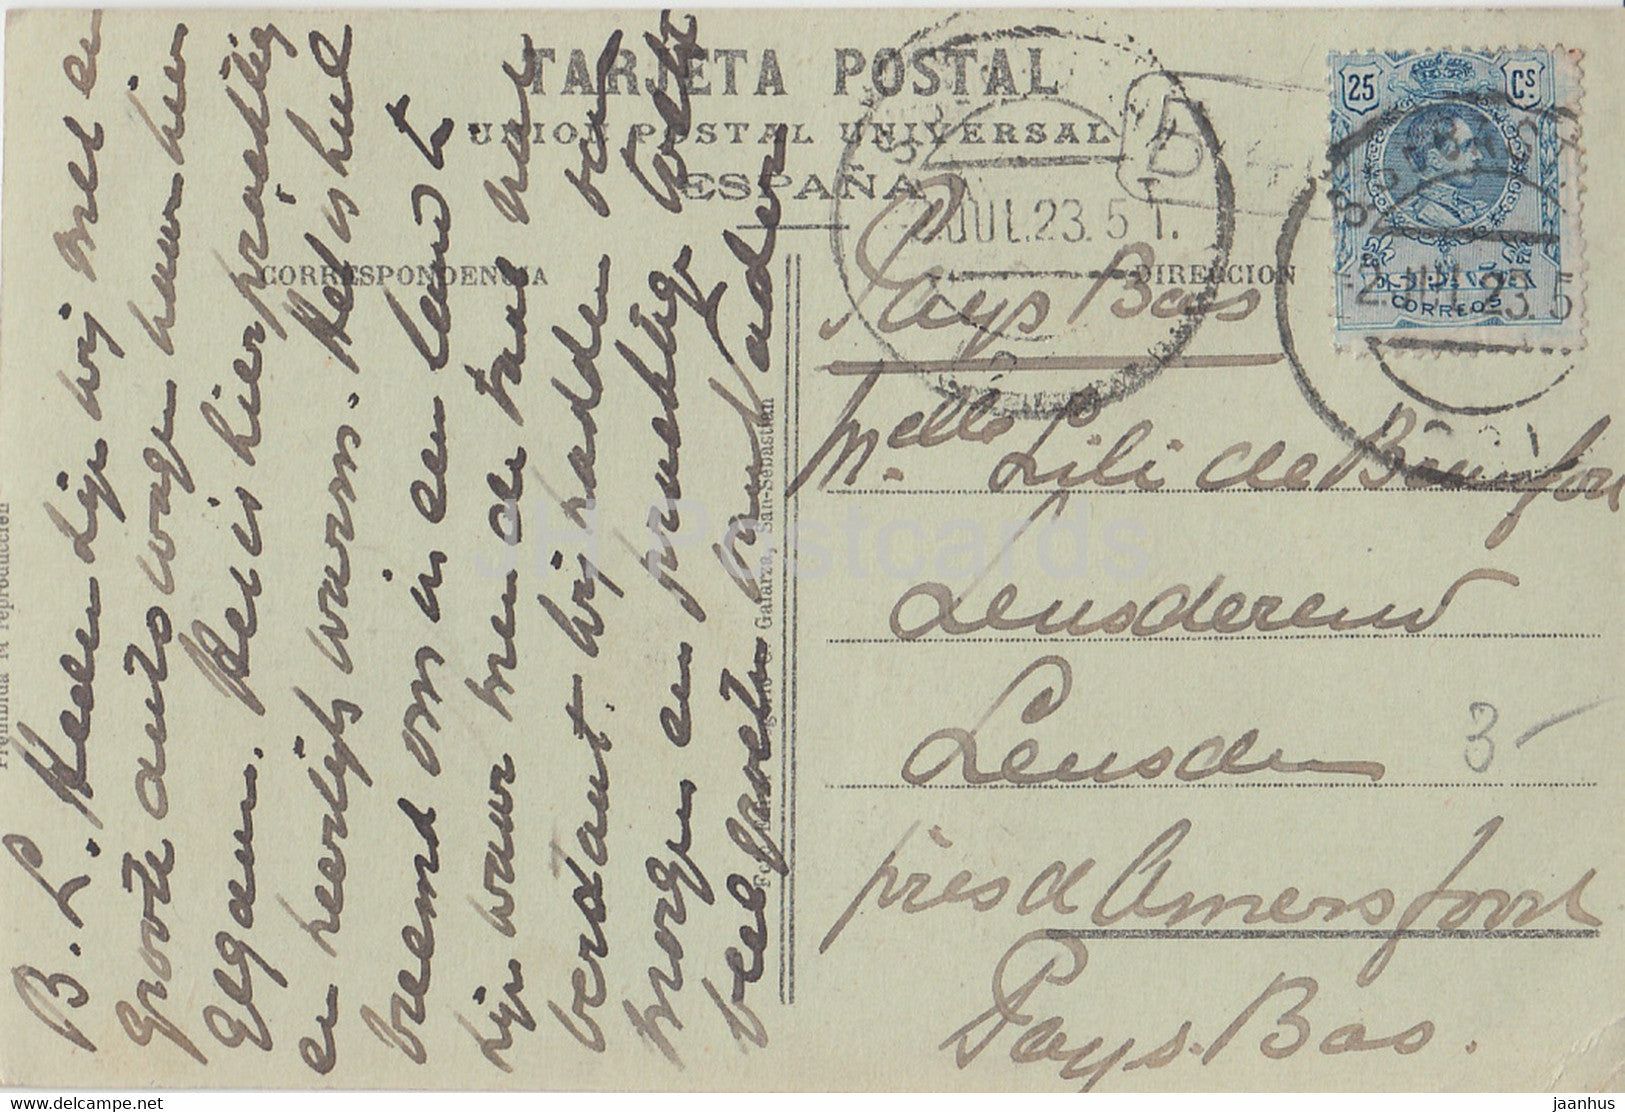 TARJETA POSTAL
UNION POSTAL UNIVERSAL
ESPAÑA
CORRESPONDENCIA
DIRECCION
25 Cs
CORREOS
JUL.23.5 T.
2.JUL.23.5
B. L. Heden zijn wij met en
groote auto wagen naar hier
gegaan. Het is hier prachtig
en heerlijk warm. Het is heel
vreemd om in een land te
zijn waar men de taal niet
verstaat. Wij hadden een
morgen en
veel groeten van Vader
Pays Bas
Melle Lili de Beaufort
Leusderend
Leusden
près d'Amersfoort
Pays-Bas.
3-
Prohibida la reproducción
Galarza, San-Sebastian
JH Postcards
delcampe.net
jaanhus